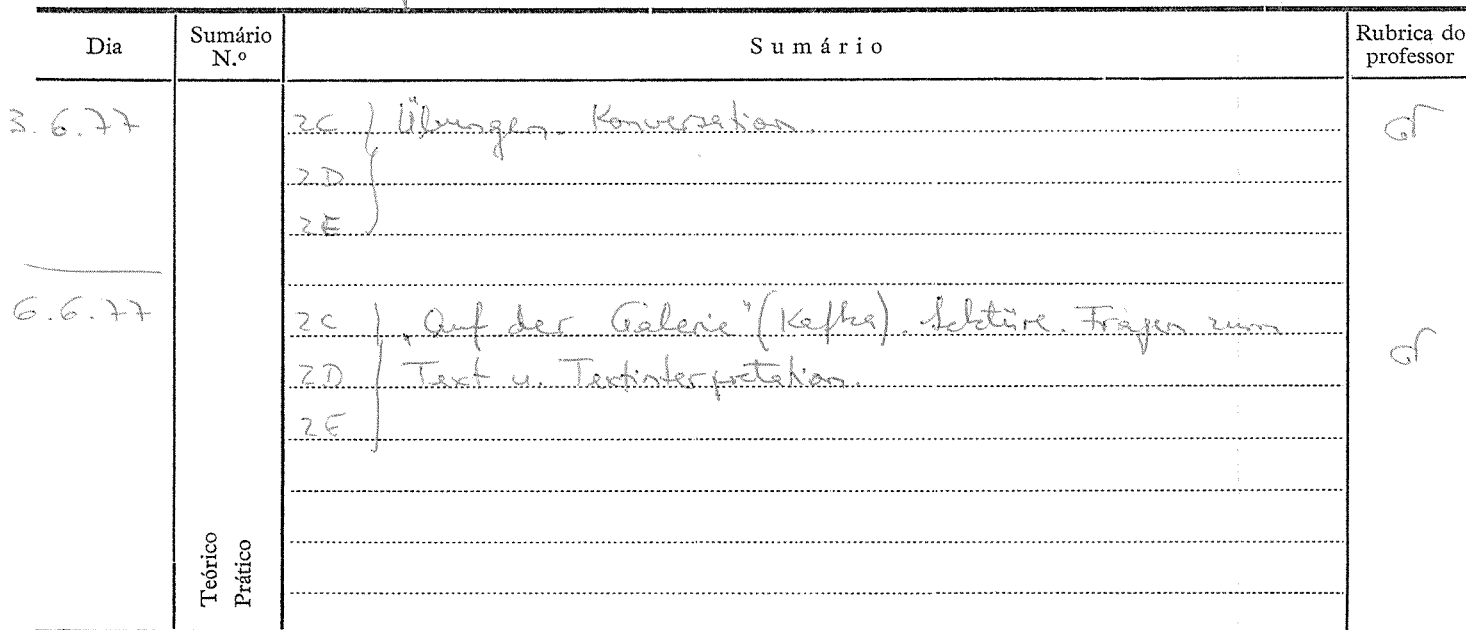 Dia
Sumário N.º
Sumário
Rubrica do professor
3.6.77
2C Übungen. Konversation.
2D
2E
6.6.77
2C „Auf der Galerie" (Kafka). Lektüre. Fragen zum
2D Text u. Textinterpretation.
2E
Teórico
Prático